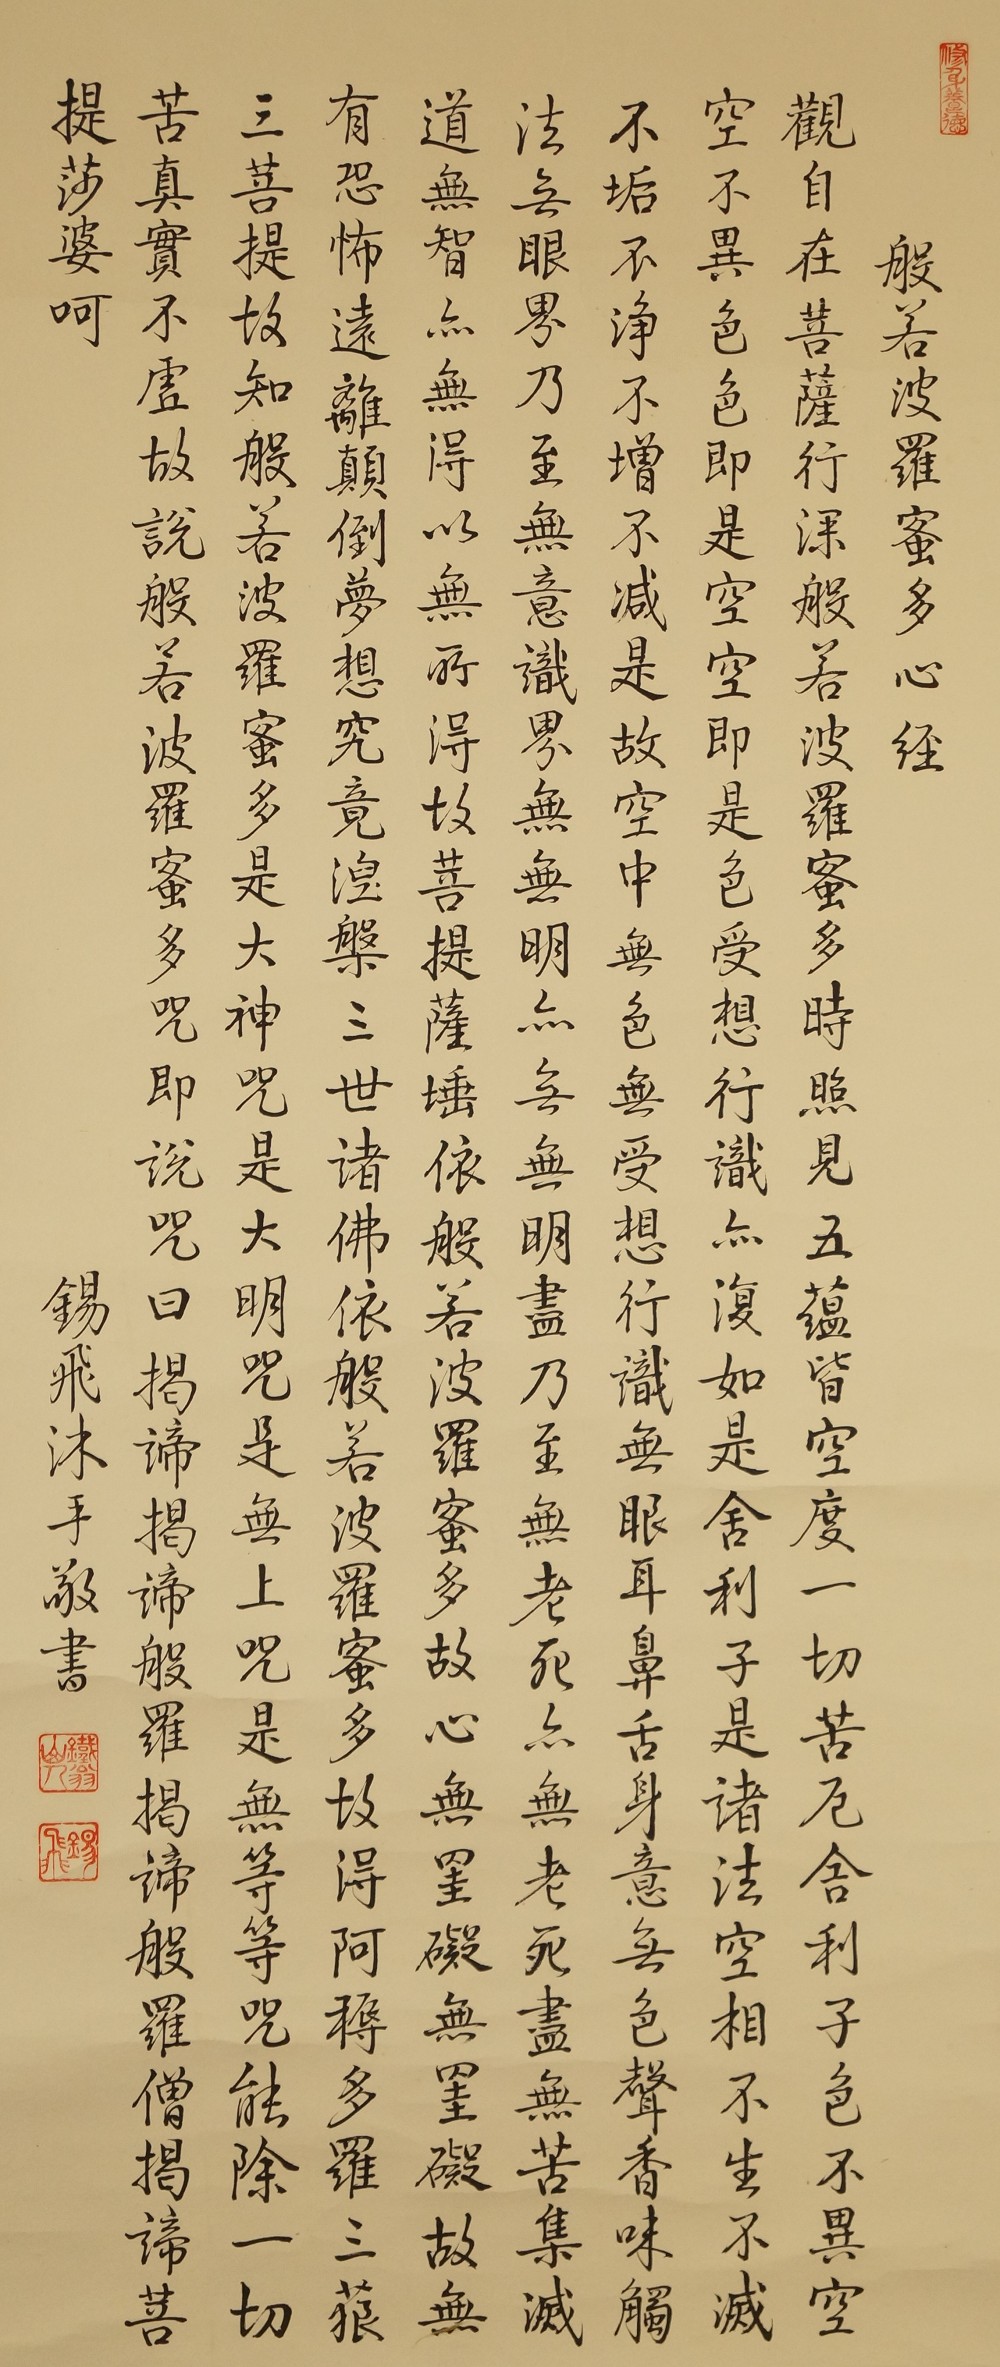 般若波羅蜜多心経
觀自在菩薩行深般若波羅蜜多時照見五蘊皆空度一切苦厄舍利子色不異空
空不異色色即是空空即是色受想行識亦復如是舍利子是諸法空相不生不滅
不垢不淨不增不減是故空中無色無受想行識無眼耳鼻舌身意无色聲香味觸
法无眼界乃至無意識界無無明亦无無明盡乃至無老死亦無老死盡無苦集滅
道無智亦無得以無所得故菩提薩埵依般若波羅蜜多故心無罣礙無罣礙故無
有恐怖遠離顛倒夢想究竟涅槃三世諸佛依般若波羅蜜多故得阿耨多羅三藐
三菩提故知般若波羅蜜多是大神咒是大明咒是無上咒是無等等咒能除一切
苦真實不虛故說般若波羅蜜多咒即說咒曰揭諦揭諦般羅揭諦般羅僧揭諦菩
提莎婆呵
錫飛沐手敬書
錫飛